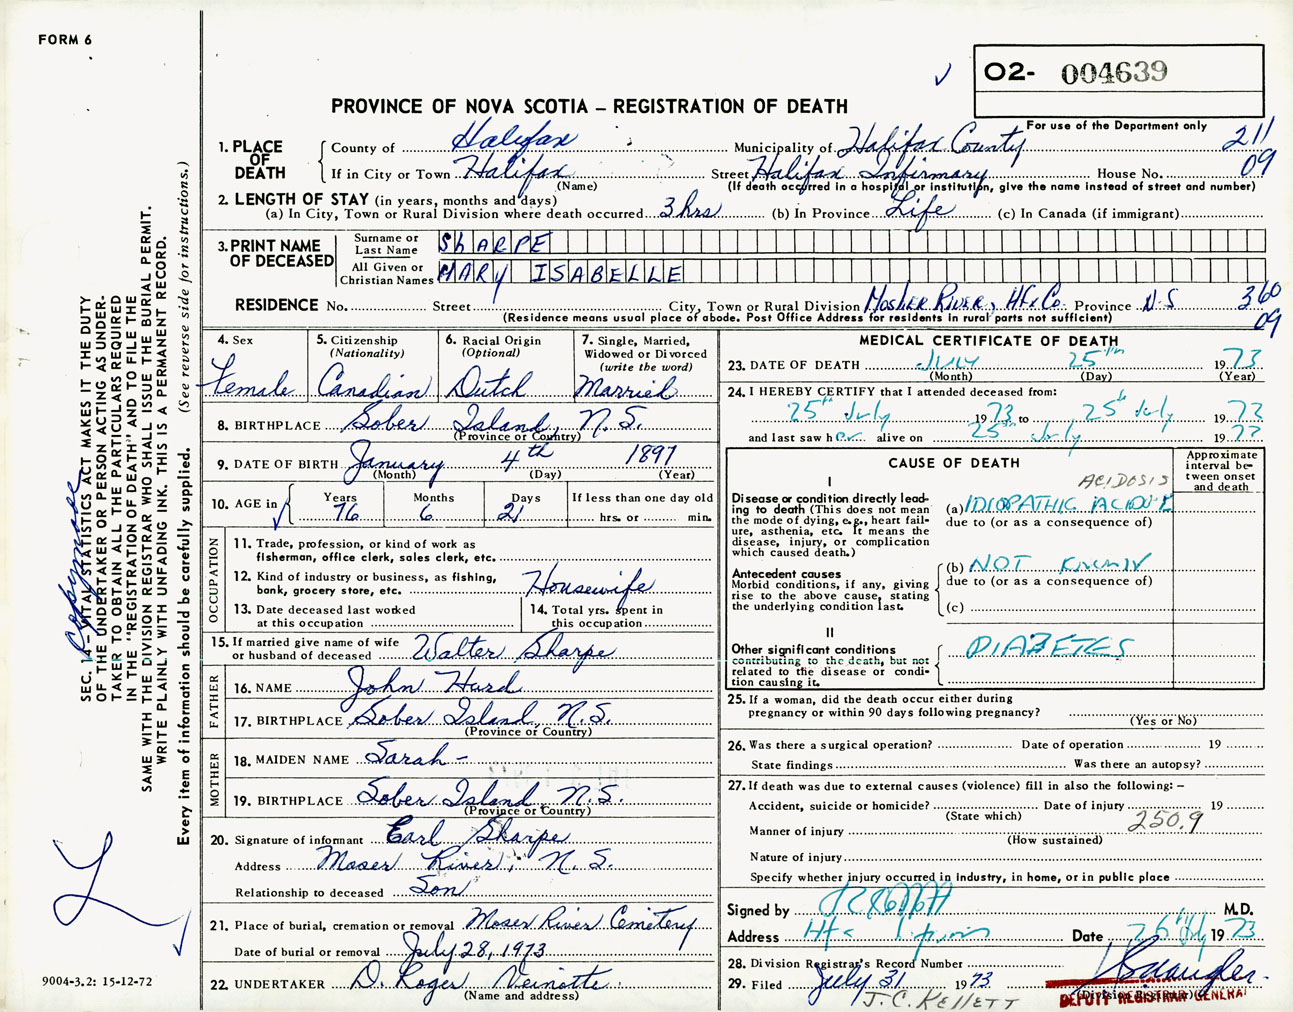 FORM 6
02- 004639
PROVINCE OF NOVA SCOTIA – REGISTRATION OF DEATH
For use of the Department only
211
09
1. PLACE OF DEATH
County of Halifax Municipality of Halifax County
If in City or Town Halifax Street Halifax Infirmary House No.
(Name) (If death occurred in a hospital or institution, give the name instead of street and number)
2. LENGTH OF STAY (in years, months and days)
(a) In City, Town or Rural Division where death occurred 3 hrs (b) In Province Life (c) In Canada (if immigrant)
3. PRINT NAME OF DECEASED
Surname or Last Name ShARPE
All Given or Christian Names MARY ISABELLE
RESIDENCE No. Street City, Town or Rural Division MOSHER RIVER, Hfx Co. Province N.S 360
09
(Residence means usual place of abode. Post Office Address for residents in rural parts not sufficient)
4. Sex
Female
5. Citizenship
(Nationality)
Canadian
6. Racial Origin
(Optional)
Dutch
7. Single, Married,
Widowed or Divorced
(write the word)
Married
8. BIRTHPLACE Sober Island, N.S.
(Province or Country)
9. DATE OF BIRTH January 4th 1897
(Month) (Day) (Year)
10. AGE in Years Months Days If less than one day old
76 6 21 hrs. or min.
OCCUPATION
11. Trade, profession, or kind of work as
fisherman, office clerk, sales clerk, etc.
12. Kind of industry or business, as fishing,
bank, grocery store, etc. Housewife
13. Date deceased last worked
at this occupation
14. Total yrs. spent in
this occupation
15. If married give name of wife
or husband of deceased Walter Sharpe
FATHER
16. NAME John Hard
17. BIRTHPLACE Sober Island, N.S.
(Province or Country)
MOTHER
18. MAIDEN NAME Sarah –
19. BIRTHPLACE Sober Island, N.S.
(Province or Country)
20. Signature of informant Earl Sharpe
Address Moser River, N.S.
Relationship to deceased Son
21. Place of burial, cremation or removal Moser River Cemetery
Date of burial or removal July 28, 1973
22. UNDERTAKER D. Roger Veinotte
(Name and address)
MEDICAL CERTIFICATE OF DEATH
23. DATE OF DEATH July 25th 1973
(Month) (Day) (Year)
24. I HEREBY CERTIFY that I attended deceased from:
25th July 1973 to 25th July 1973
and last saw her alive on 25th July 19
CAUSE OF DEATH
Approximate
interval be-
tween onset
and death
I
ACIDOSIS
Disease or condition directly lead-
ing to death (This does not mean
the mode of dying, e.g., heart fail-
ure, asthenia, etc. It means the
disease, injury, or complication
which caused death.)
(a) IDIOPATHIC
due to (or as a consequence of)
Antecedent causes
Morbid conditions, if any, giving
rise to the above cause, stating
the underlying condition last.
(b) NOT KNOWN
due to (or as a consequence of)
(c)
II
Other significant conditions
contributing to the death, but not
related to the disease or condi-
tion causing it.
DIABETES
25. If a woman, did the death occur either during
pregnancy or within 90 days following pregnancy?
(Yes or No)
26. Was there a surgical operation? Date of operation 19
State findings Was there an autopsy?
27. If death was due to external causes (violence) fill in also the following: –
Accident, suicide or homicide? Date of injury 19
(State which)
250.9
Manner of injury
(How sustained)
Nature of injury
Specify whether injury occurred in industry, in home, or in public place
Signed by M.D.
Address Hfx Date 26 July 1973
28. Division Registrar's Record Number
29. Filed July 31 1973
J.C. KELLETT
(Division Registrar)
DEPUTY REGISTRAR GENERAL
SEC. 14 – VITAL STATISTICS ACT MAKES IT THE DUTY
OF THE UNDERTAKER OR PERSON ACTING AS UNDER-
TAKER TO OBTAIN ALL THE PARTICULARS REQUIRED
IN THE "REGISTRATION OF DEATH" AND TO FILE THE
SAME WITH THE DIVISION REGISTRAR WHO SHALL ISSUE THE BURIAL PERMIT.
WRITE PLAINLY WITH UNFADING INK. THIS IS A PERMANENT RECORD.
Every item of information should be carefully supplied. (See reverse side for instructions.)
9004-3.2: 15-12-72